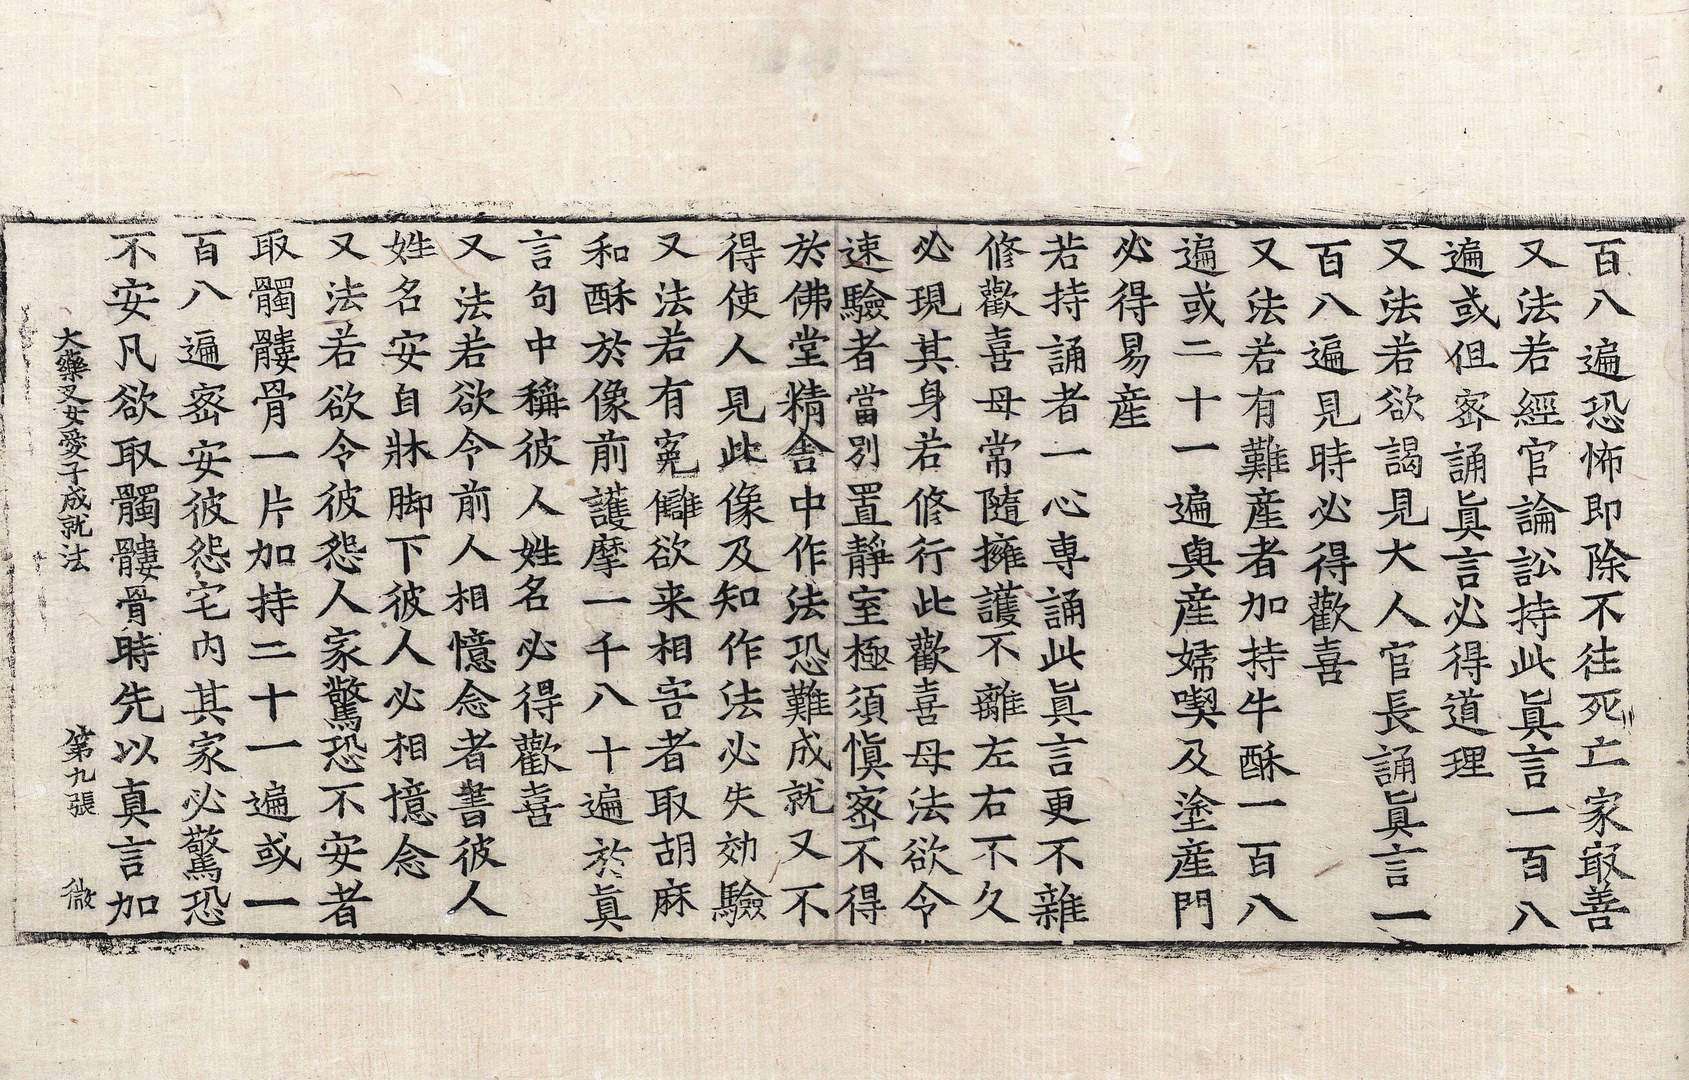 百八遍恐怖即除不往死亡家㝡善
又法若經官論訟持此眞言一百八
遍或但宻誦眞言必得道理
又法若欲謁見大人官長誦眞言一
百八遍見時必得歡喜
又法若有難產者加持牛酥一百八
遍或二十一遍與產婦喫及塗產門
必得易產
若持誦者一心専誦此眞言更不雜
修歡喜母常隨擁護不離左右不久
必現其身若修行此歡喜母法欲令
速驗者當別置靜室極須愼宻不得
於佛堂精舍中作法恐難成就又不
得使人見此像及知作法必失効驗
又法若有寃讎欲来相害者取胡麻
和酥於像前護摩一千八十遍於眞
言句中稱彼人姓名必得歡喜
又法若欲令前人相憶念者書彼人
姓名安自牀脚下彼人必相憶念
又法若欲令彼怨人家驚恐不安者
取髑髏骨一片加持二十一遍或一
百八遍宻安彼怨宅内其家必驚恐
不安凡欲取髑髏骨時先以真言加
大藥叉女愛子成就法 第九張 微